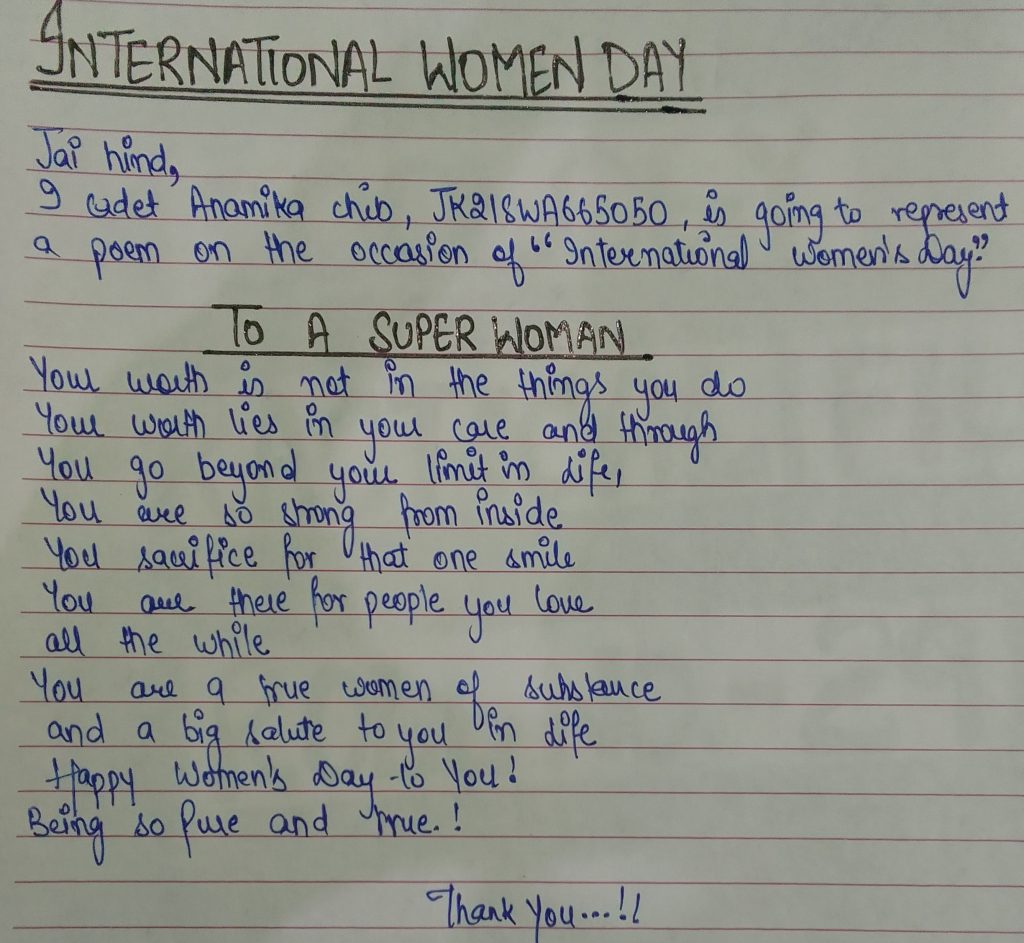 INTERNATIONAL WOMEN DAY
Jai hind,
I cadet Anamika chib, JK21SWA665050, is going to represent
a poem on the occasion of "International Women's Day."
TO A SUPER WOMAN
Your worth is not in the things you do
Your worth lies in your care and through
You go beyond your limit in life,
You are so strong from inside
You sacrifice for that one smile
You are there for people you love
all the while
You are a true women of substance
and a big salute to you in life
Happy Women's Day to You!
Being so Pure and True.!
Thank You...!!